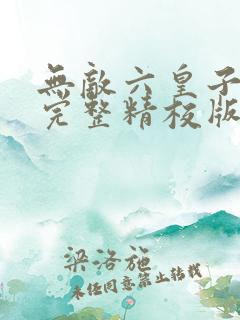 無敵六皇子
完整精校版
梁洛施
未经同意禁止转载